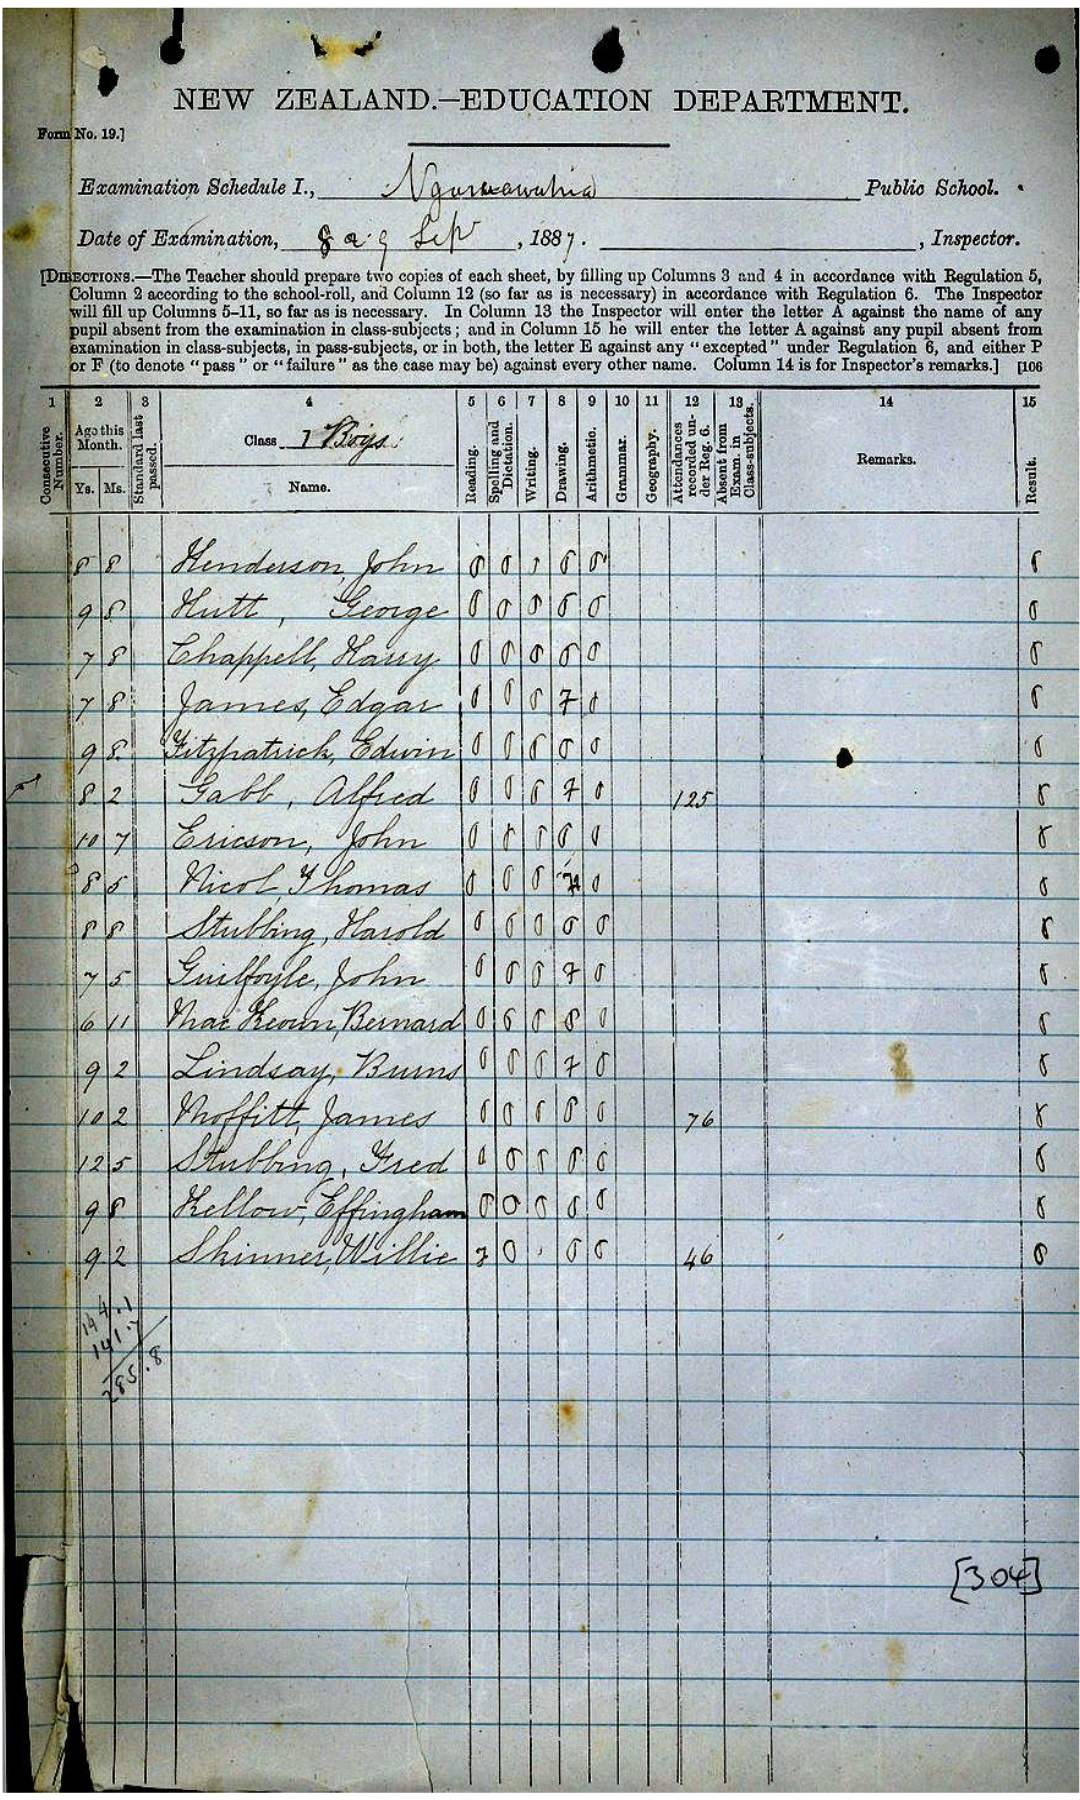 NEW ZEALAND.—EDUCATION DEPARTMENT.
Form No. 19.]
Examination Schedule I., Ngaruawahia Public School.
Date of Examination, 8 & 9 Sep, 1887. , Inspector.
[DIRECTIONS.—The Teacher should prepare two copies of each sheet, by filling up Columns 3 and 4 in accordance with Regulation 5,
Column 2 according to the school-roll, and Column 12 (so far as is necessary) in accordance with Regulation 6. The Inspector
will fill up Columns 5-11, so far as is necessary. In Column 13 the Inspector will enter the letter A against the name of any
pupil absent from the examination in class-subjects; and in Column 15 he will enter the letter A against any pupil absent from
examination in class-subjects, in pass-subjects, or in both, the letter E against any "excepted" under Regulation 6, and either P
or F (to denote "pass" or "failure" as the case may be) against every other name. Column 14 is for Inspector's remarks.] [106
1 2 3 4 5 6 7 8 9 10 11 12 13 14 15
Consecutive Number.
Age this Month.
Ys. Ms.
Standard last passed.
Class Boys.
Name.
Reading.
Spelling and Dictation.
Writing.
Drawing.
Arithmetic.
Grammar.
Geography.
Attendances recorded under Reg. 6.
Absent from Exam. in Class-subjects.
Remarks.
Result.
8 8 Henderson, John
9 8 Hutt, George
7 8 Chappell, Harry
7 8 James, Edgar
9 8 Fitzpatrick, Edwin
8 2 Gabb, Alfred 125
10 7 Ericson, John
8 5 Nicol, Thomas
8 8 Stubbing, Harold
7 5 Guilfoyle, John
6 11 MacKeown, Bernard
9 2 Lindsay, Burns
10 2 Moffitt, James 76
12 5 Stubbing, Fred
9 8 Kellow, Effingham
9 2 Skinner, Willie 46
144.1
141.7
285.8
[304]